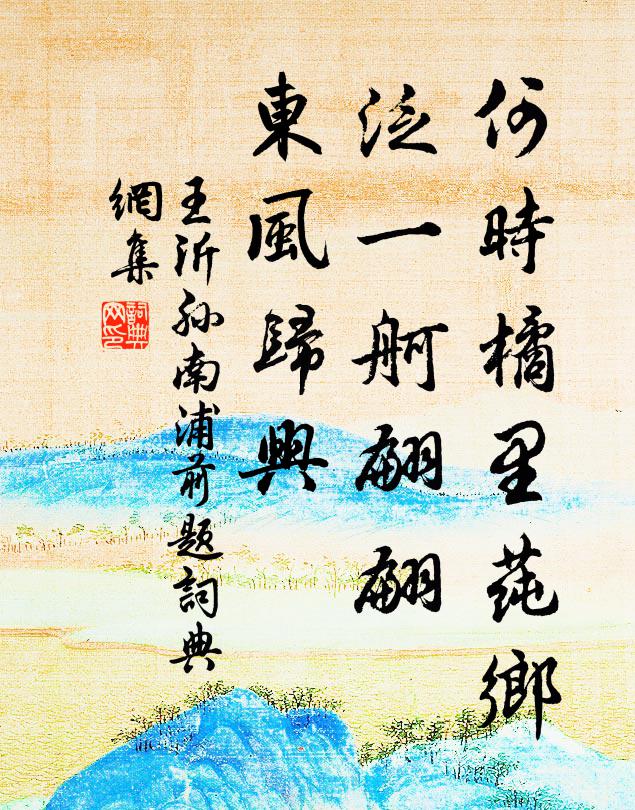 何時橘里蒓鄉
泛一舸翩翩
東風歸興
王沂孫南浦前題詞典
網集
詞典
网印